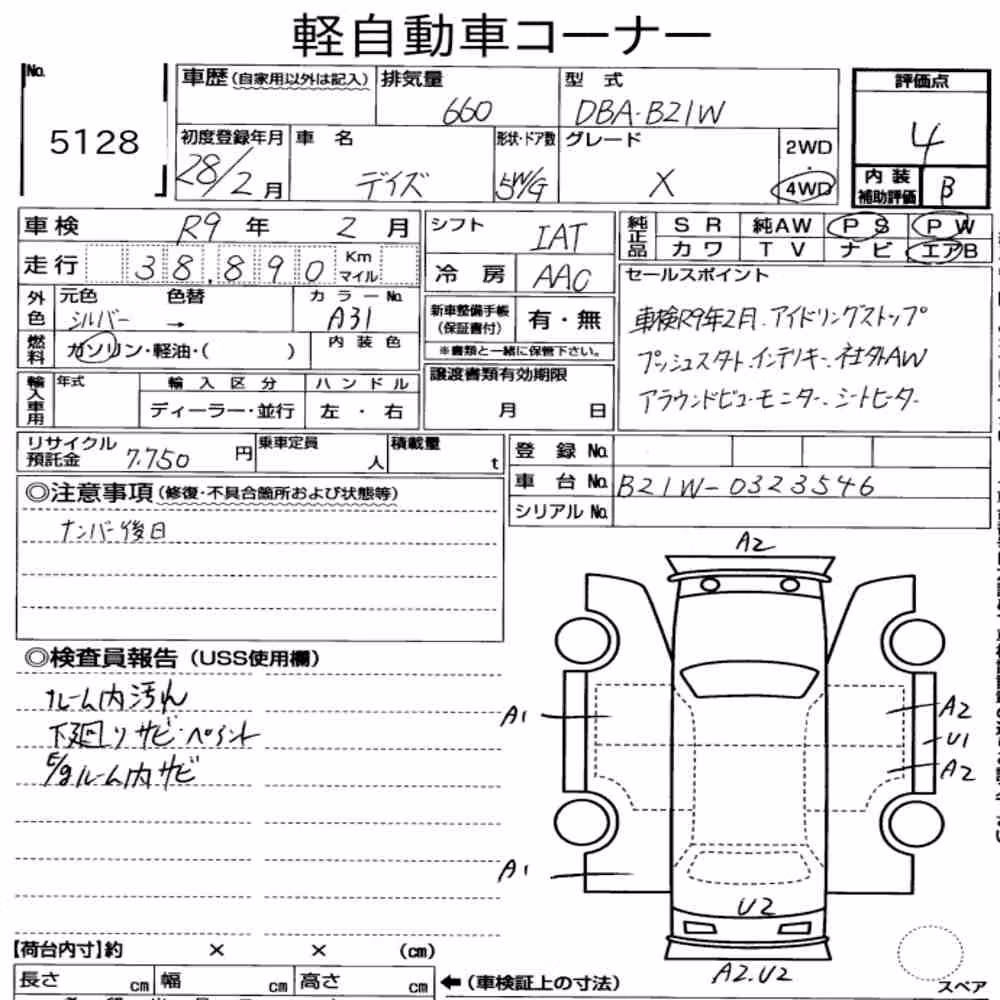 軽自動車コーナー
No.
5128
車歴(自家用以外は記入)
排気量
660
型 式
DBA-B21W
評価点
4
内装
補助評価
B
初度登録年月
28/2月
車 名
デイズ
形状・ドア数
5W/G
グレード
X
2WD
・
4WD
車検 R9年 2月
走行 38,890 Km
マイル
外色
元色 色替
シルバー →
カラーNo.
A31
燃料
ガソリン・軽油・( )
内装色
シフト
IAT
冷 房
AAC
新車整備手帳
(保証書付)
有・無
※書類と一緒に保管下さい。
純正品
SR 純AW PS PW
カワ TV ナビ エアB
セールスポイント
車検R9年2月.アイドリングストップ
プッシュスタート.インテリキー.社外AW
アラウンドビューモニター.シートヒーター
輸入車用
年式
輸入区分
ディーラー・並行
ハンドル
左・右
譲渡書類有効期限
月 日
リサイクル
預託金
7.750円
乗車定員
人
積載量
t
登 録 No.
車 台 No. B21W-0323546
シリアル No.
◎注意事項(修復・不具合箇所および状態等)
ナンバー後日
◎検査員報告(USS使用欄)
ルーム内汚れ
下廻りサビ・ペイント
E/gルーム内サビ
A2
A1
A2
U1
A2
A1
U2
A2.U2
スペア
【荷台内寸】約 × × (cm)
長さ cm 幅 cm 高さ cm
←(車検証上の寸法)